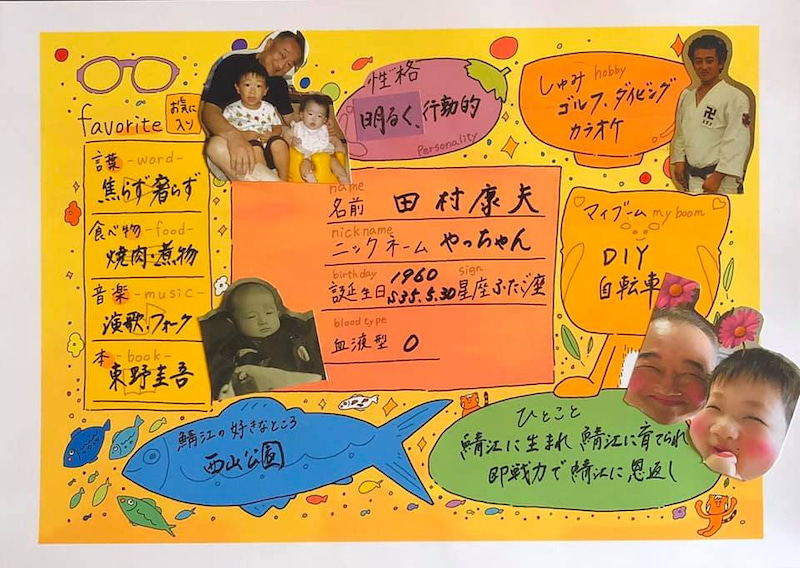 favorite
お気に
入り
言葉 -word-
焦らず奢らず
食べ物 -food-
焼肉・煮物
音楽 -music-
演歌・フォーク
本 -book-
東野圭吾
性格
明るく、行動的
Personality
しゅみ hobby
ゴルフ、ダイビング
カラオケ
name
名前 田村康夫
nickname
ニックネーム やっちゃん
birthday 1960 sign
誕生日 S35.5.30 星座 ふたご座
blood type
血液型 O
マイブーム my boom
DIY
自転車
鯖江の好きなところ
西山公園
ひとこと
鯖江に生まれ 鯖江に育てられ
即戦力で鯖江に恩返し